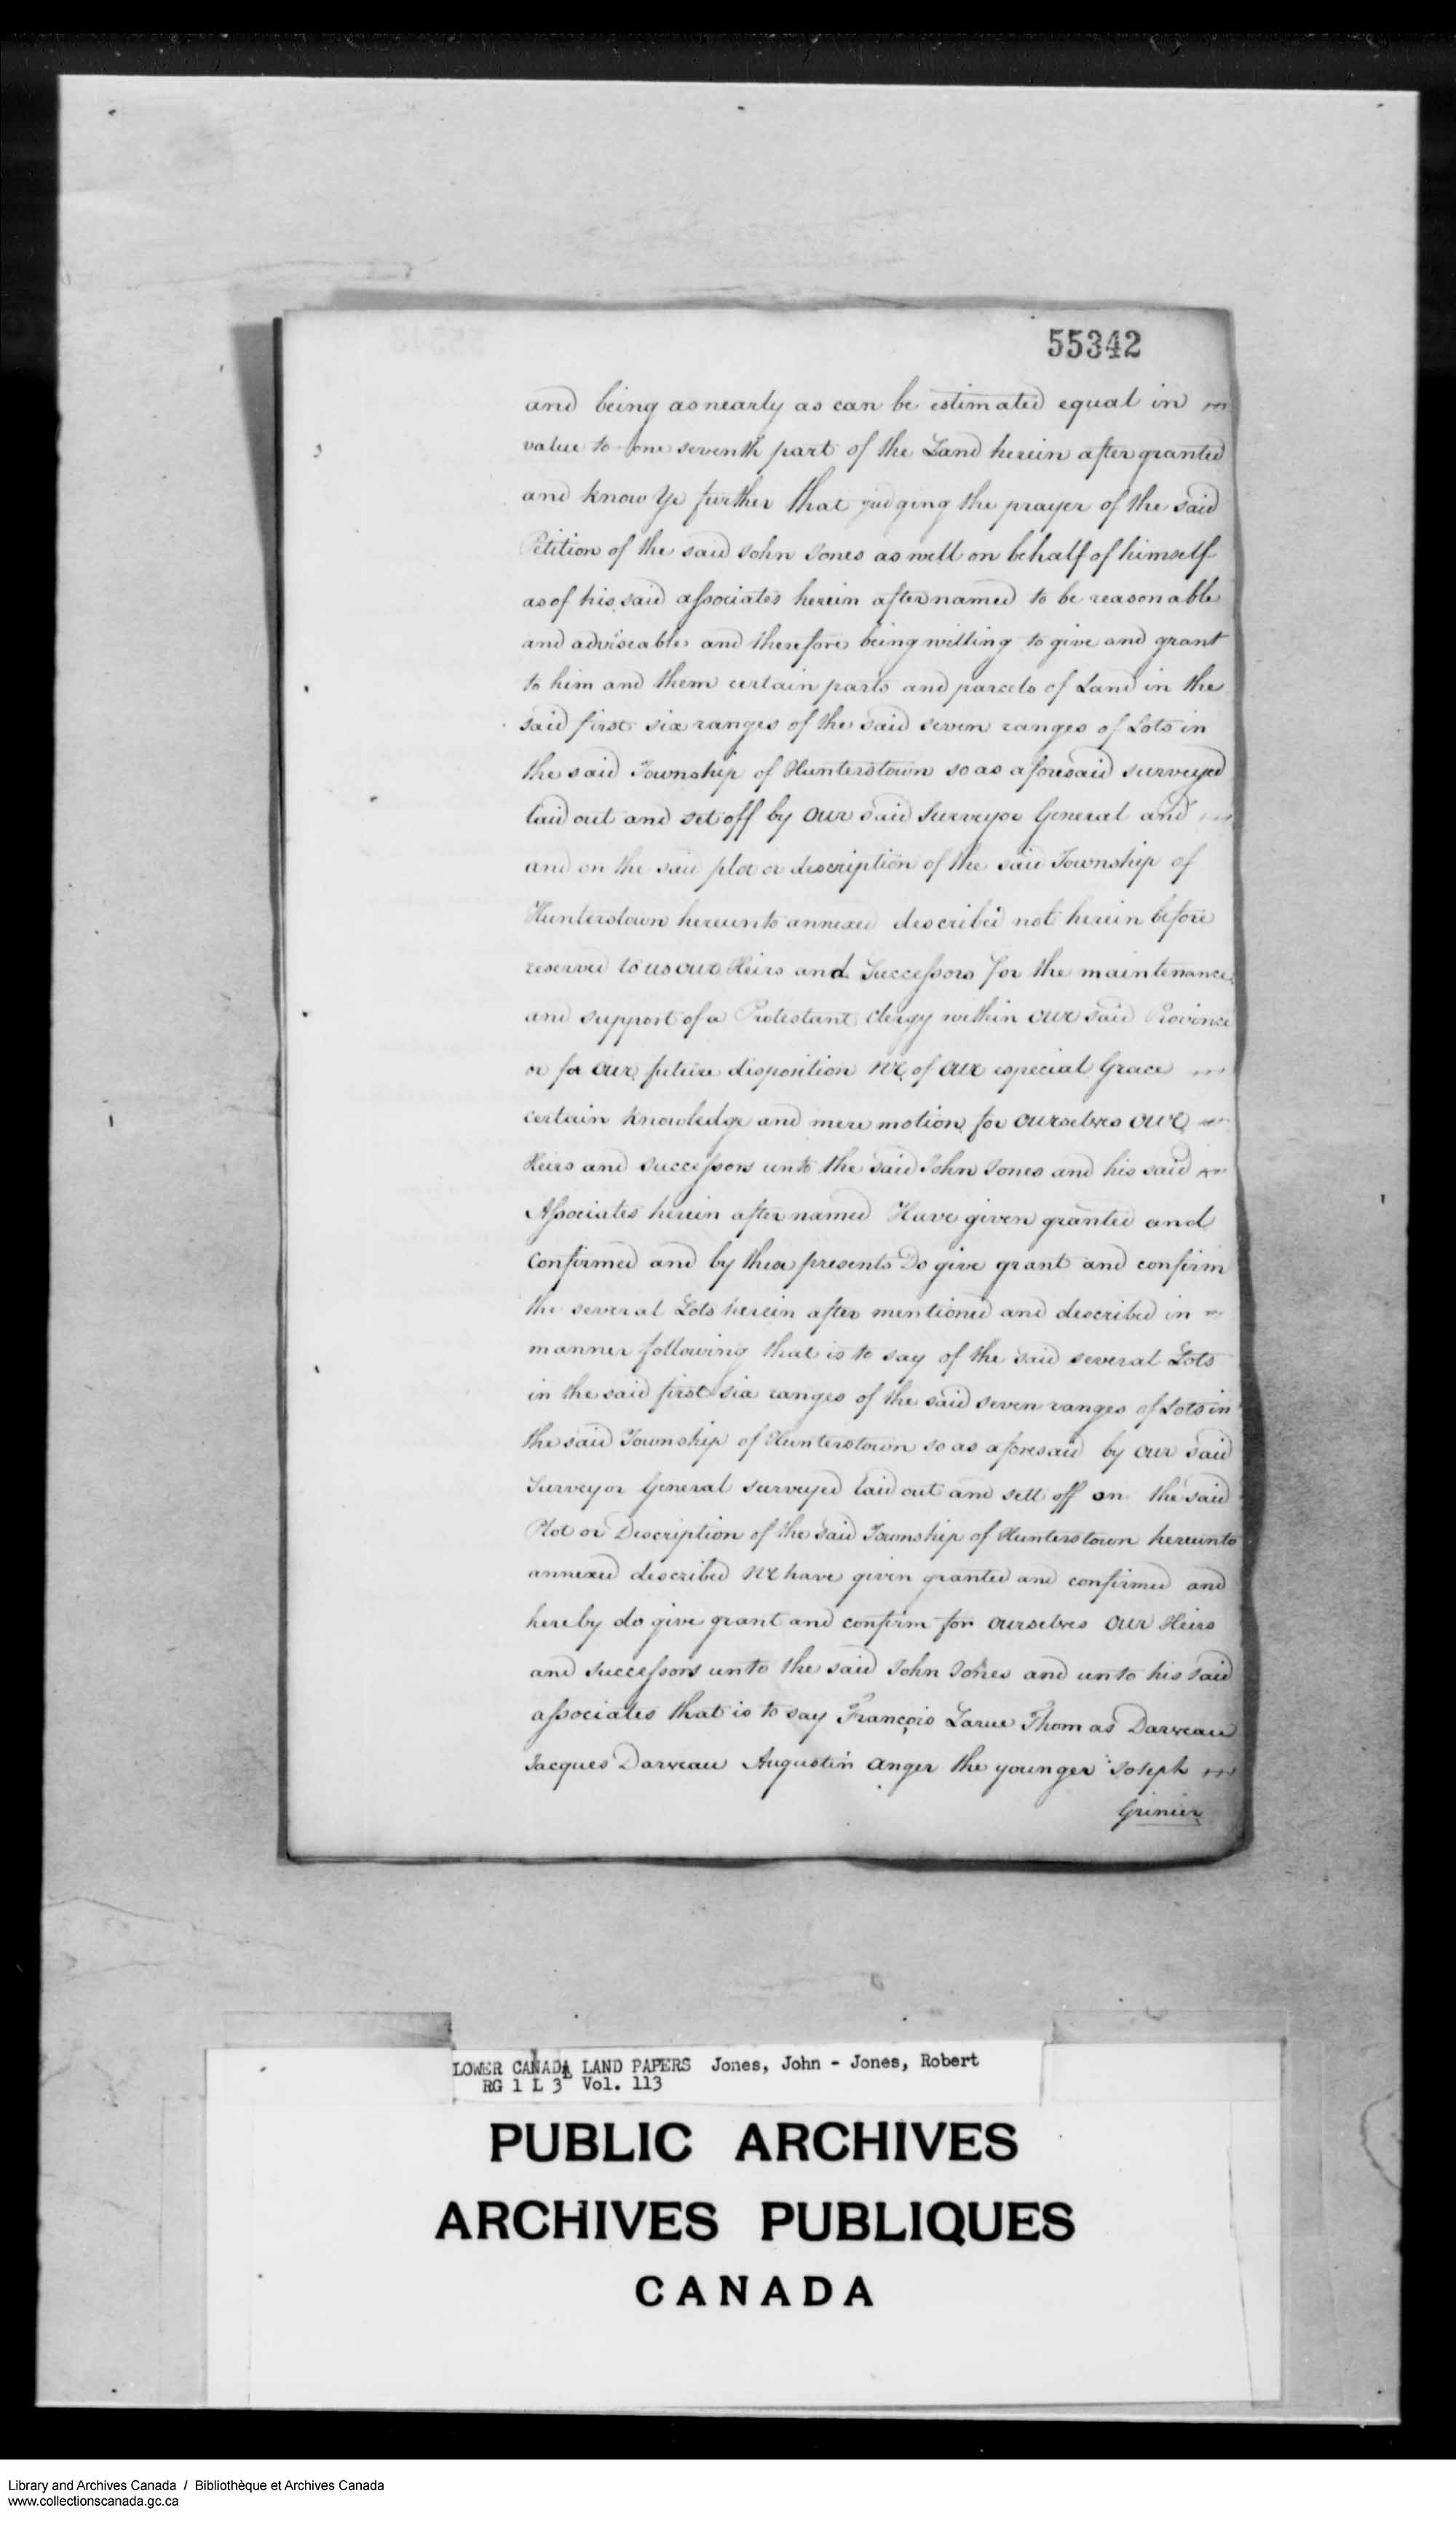 55342
and being as nearly as can be estimated equal in
value to one seventh part of the Land herein after granted
and know Ye further that judging the prayer of the said
Petition of the said John Jones as well on behalf of himself
as of his said associates herein after named to be reasonable
and adviseable and therefore being willing to give and grant
to him and them certain parts and parcels of Land in the
said first six ranges of the said seven ranges of Lots in
the said Township of Hunterstown so as aforesaid surveyed
laid out and set off by our said Surveyor General and
and on the said plot or description of the said Township of
Hunterstown hereunto annexed described not herein before
reserved to us our Heirs and Successors for the maintenance
and support of a Protestant clergy within our said Province
or for our future disposition We of our especial Grace
certain knowledge and mere motion for ourselves our
Heirs and successors unto the said John Jones and his said
Associates herein after named Have given granted and
Confirmed and by these presents Do give grant and confirm
the several Lots herein after mentioned and described in
manner following that is to say of the said several Lots
in the said first six ranges of the said seven ranges of Lots in
the said Township of Hunterstown so as aforesaid by our said
Surveyor General surveyed laid out and sett off on the said
Plot or Description of the said Township of Hunterstown hereunto
annexed described We have given granted and confirmed and
hereby do give grant and confirm for ourselves our Heirs
and successors unto the said John Jones and unto his said
associates that is to say François Larue Thomas Darveau
Jacques Darveau Augustin Anger the younger Joseph
Grinier
LOWER CANADA LAND PAPERS Jones, John - Jones, Robert
RG 1 L 3L Vol. 113
PUBLIC ARCHIVES
ARCHIVES PUBLIQUES
CANADA
Library and Archives Canada / Bibliothèque et Archives Canada
www.collectionscanada.gc.ca